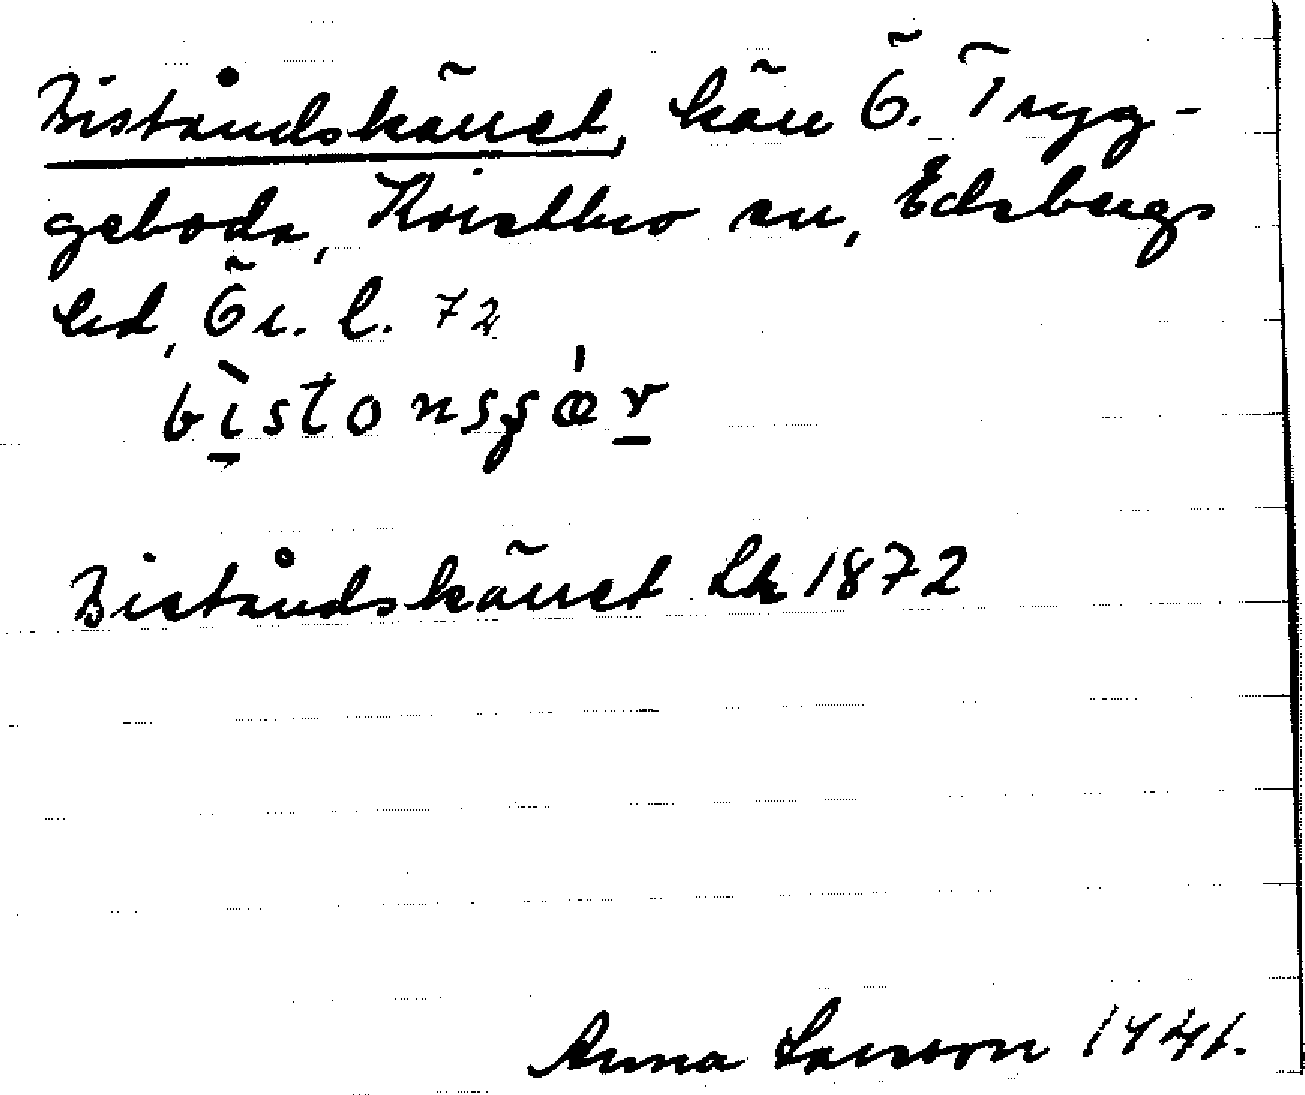 Biståndskärret, kärr Ö. Tryg-
geboda, Kvistbro sn, Edsbergs
hd, Ör. l. 72
bistonsʂær
Biståndskärret Lk 1872
Anna Larsson 1941.